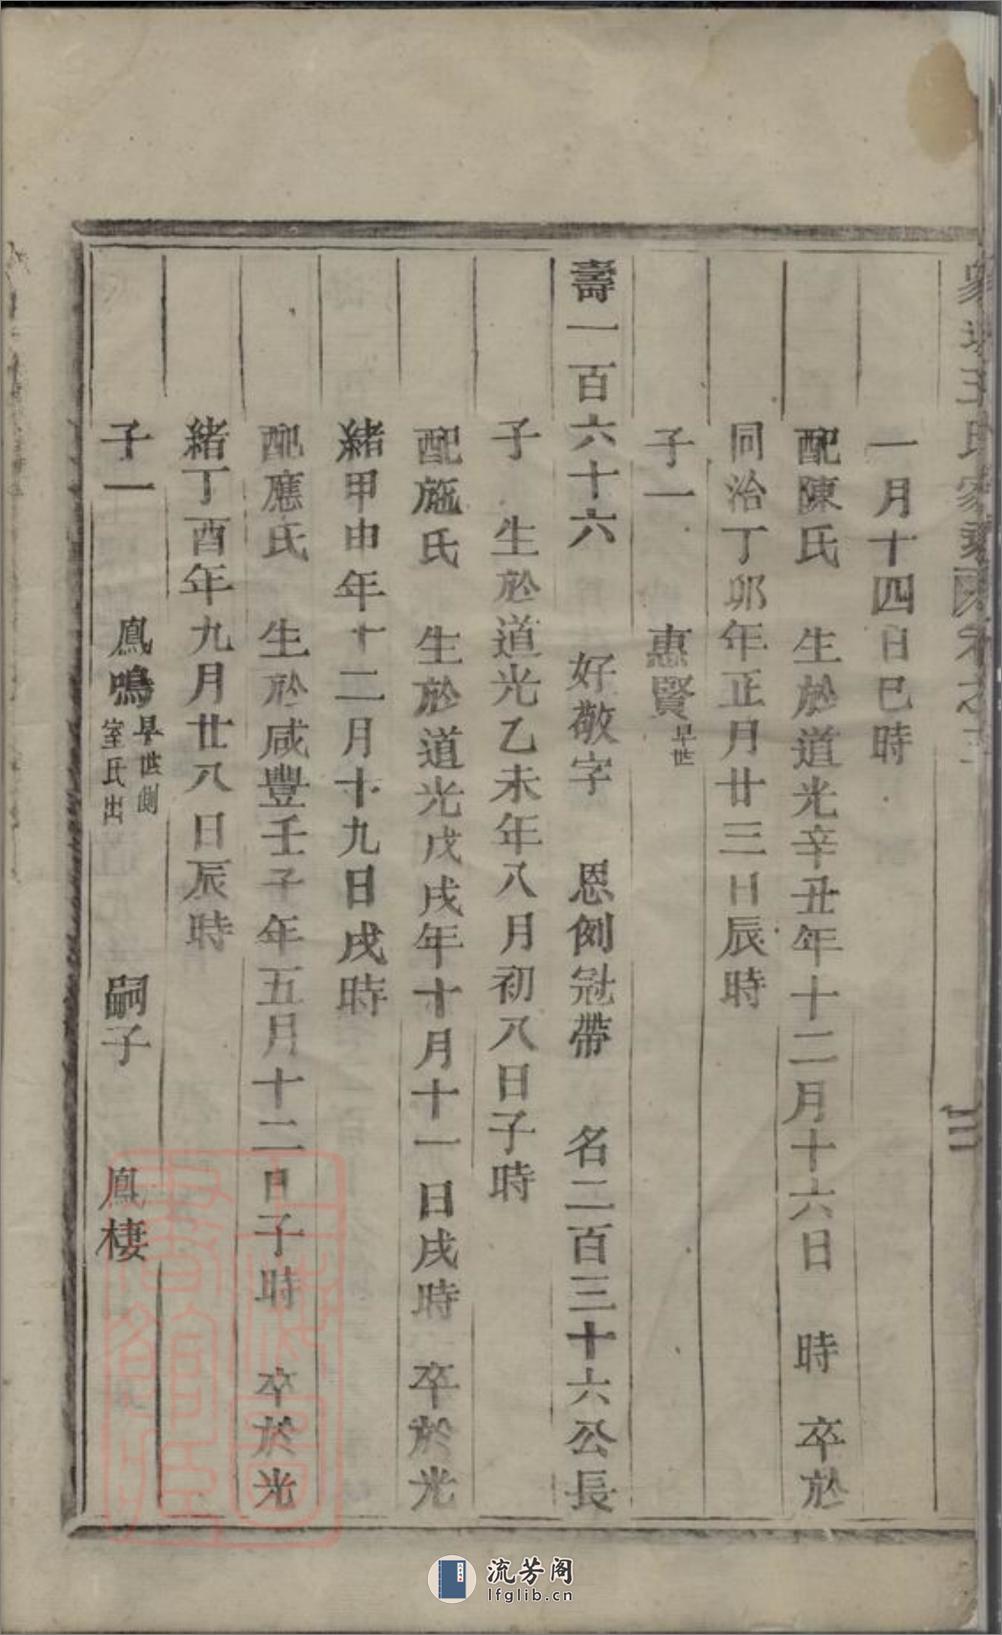 一月十四日巳時
配陳氏　生於道光辛丑年十二月十六日　時　卒於
同治丁卯年正月廿三日辰時
子一　惠賢早世
壽一百六十六　好敬字　恩例冠帶　名二百三十六公長
子　生於道光乙未年八月初八日子時
配施氏　生於道光戊戌年十月十一日戌時　卒於光
緒甲申年十二月十九日戌時
配應氏　生於咸豐壬子年五月十二日子時　卒於光
緒丁酉年九月廿八日辰時
子一　鳳鳴早世側室氏出　嗣子　鳳棲
上海圖書館藏
流芳阁
lfglib.cn